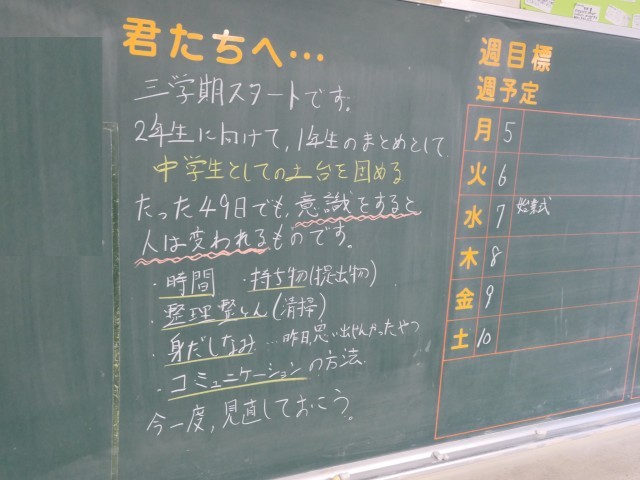 君たちへ…
三学期スタートです。
2年生に向けて、1年生のまとめとして
中学生としての土台を固める
たった49日でも、意識をすると
人は変われるものです。
・時間 ・持ち物(提出物)
・整理整とん(清掃)
・身だしなみ…昨日、思い出せんかったやつ
・コミュニケーションの方法
今一度、見直しておこう。
週目標
週予定
月 5
火 6
水 7 始業式
木 8
金 9
土 10